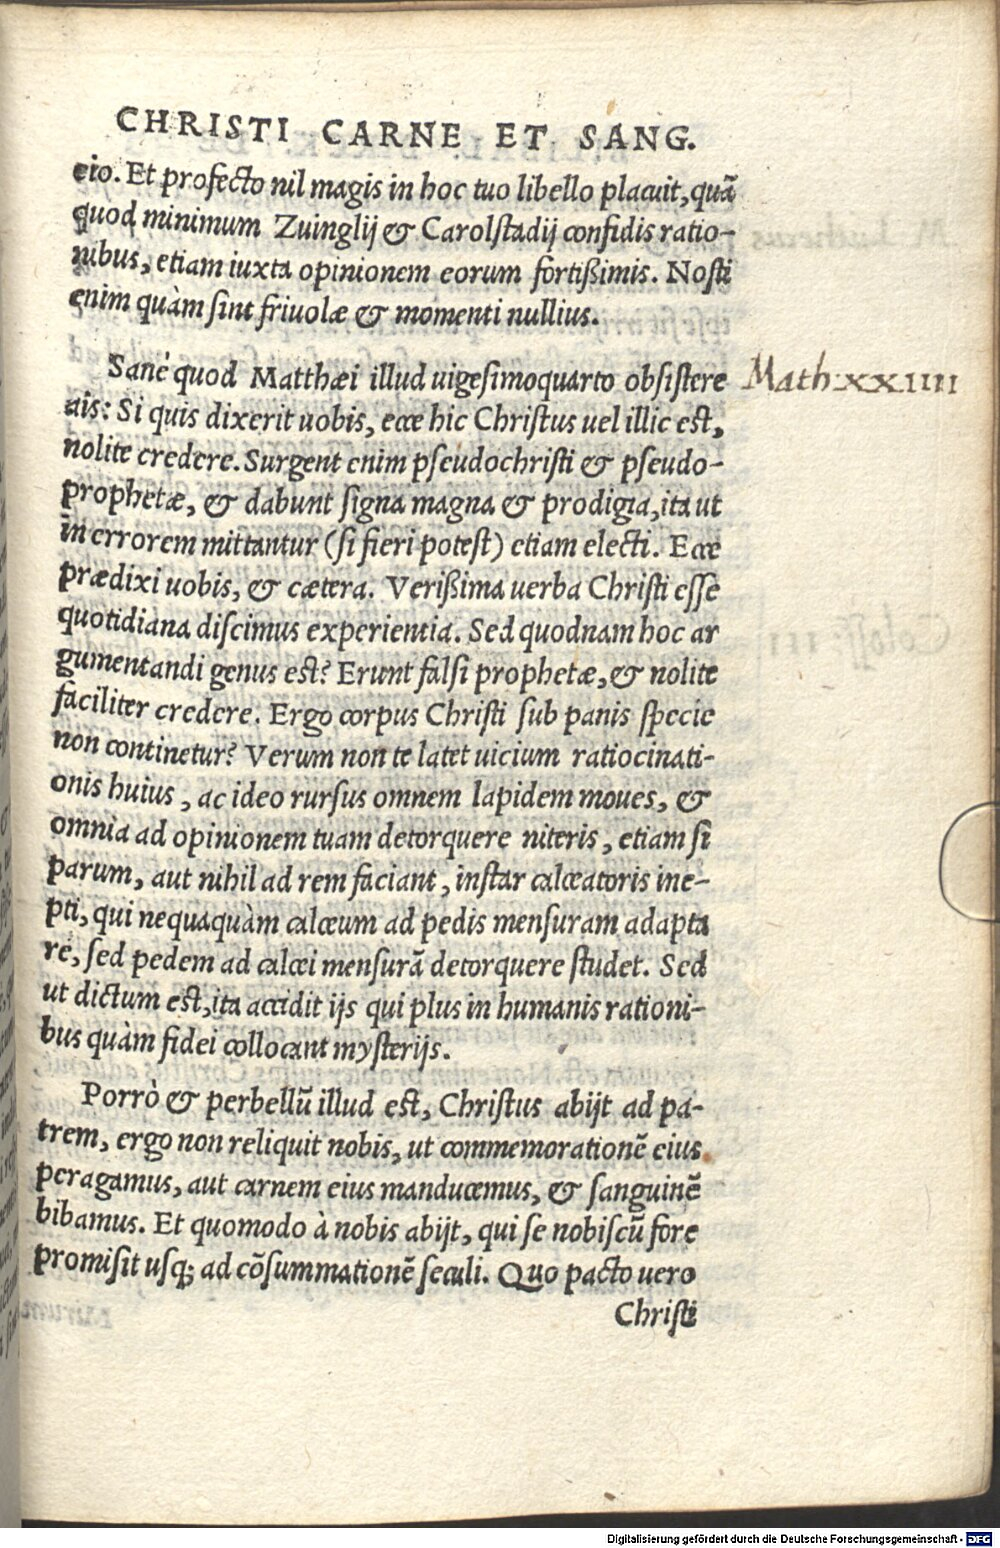 CHRISTI CARNE ET SANG.
cio. Et profecto nil magis in hoc tuo libello placuit, quã
quod minimum Zuinglij & Carolſtadij confidis ratio-
nibus, etiam iuxta opinionem eorum fortißimis. Noſti
enim quàm ſint friuolæ & momenti nullius.
Sanè quod Matthæi illud uigeſimoquarto obſiſtere
Math: XXIIII
ais: Si quis dixerit uobis, ecce hic Chriſtus uel illic eſt,
nolite credere. Surgent enim pſeudochriſti & pſeudo-
prophetæ, & dabunt ſigna magna & prodigia, ita ut
in errorem mittantur (ſi fieri poteſt) etiam electi. Ecce
prædixi uobis, & cætera. Verißima uerba Chriſti eſſe
quotidiana diſcimus experientia. Sed quodnam hoc ar
gumentandi genus eſt? Erunt falſi prophetæ, & nolite
faciliter credere. Ergo corpus Chriſti ſub panis ſpecie
non continetur? Verum non te latet uicium ratiocinati-
onis huius, ac ideo rurſus omnem lapidem moues, &
omnia ad opinionem tuam detorquere niteris, etiam ſi
parum, aut nihil ad rem faciant, inſtar calceatoris ine-
pti, qui nequaquàm calceum ad pedis menſuram adapta
re, ſed pedem ad calcei menſurã detorquere ſtudet. Sed
ut dictum eſt, ita accidit ijs qui plus in humanis rationi-
bus quàm fidei collocant myſterijs.
Porrò & perbellũ illud eſt, Chriſtus abijt ad pa-
trem, ergo non reliquit nobis, ut commemorationẽ eius
peragamus, aut carnem eius manducemus, & ſanguinẽ
bibamus. Et quomodo à nobis abijt, qui ſe nobiſcũ fore
promiſit uſq; ad cõſummationẽ ſeculi. Quo pacto uero
Chriſti
Digitalisierung gefördert durch die Deutsche Forschungsgemeinschaft - DFG